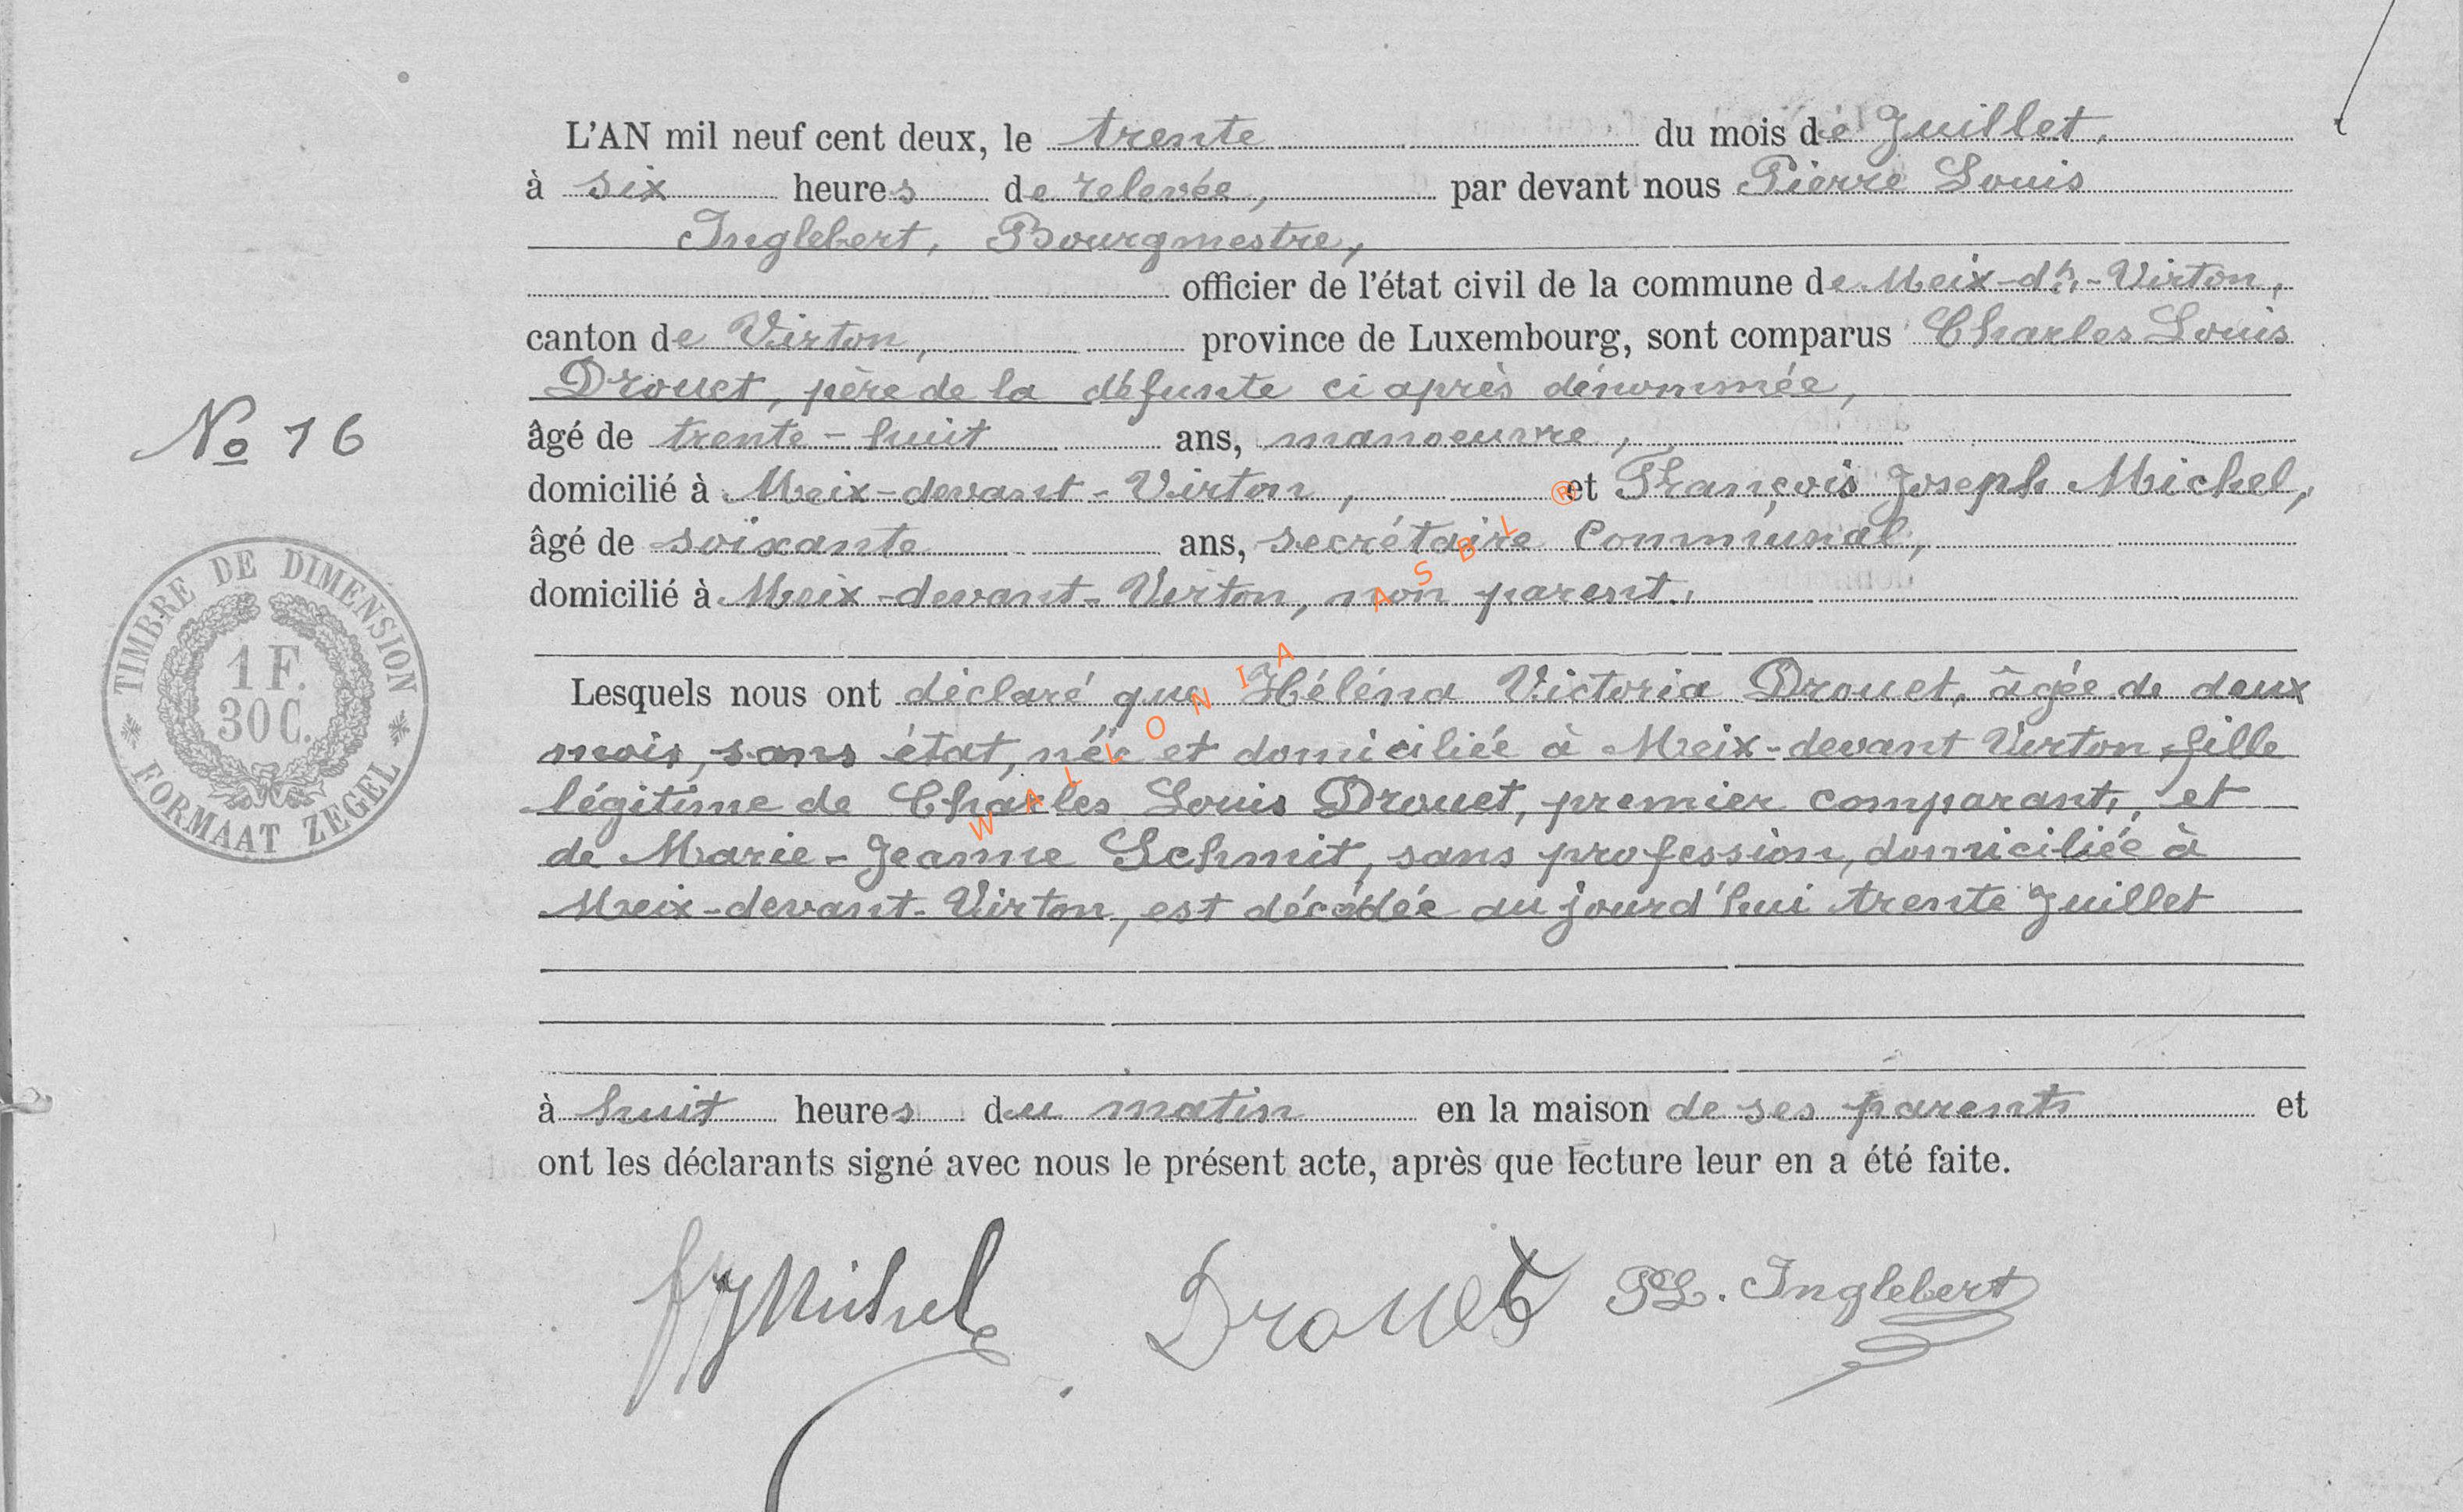 L'AN mil neuf cent deux, le trente du mois de Juillet,
à six heures de relevée, par devant nous Pierre Louis
Inglebert, Bourgmestre,
officier de l'état civil de la commune de Meix-dt-Virton,
canton de Virton, province de Luxembourg, sont comparus Charles Louis
Drouet, père de la défunte ci après dénommée,
No 16
âgé de trente-huit ans, manoeuvre,
domicilié à Meix-devant-Virton, et François Joseph Michel,
âgé de soixante ans, secrétaire Communal,
domicilié à Meix-devant-Virton, non parent.
Lesquels nous ont déclaré que Héléna Victoria Drouet, âgée de deux
mois, sans état, née et domiciliée à Meix-devant Virton, fille
légitime de Charles Louis Drouet, premier comparant, et
de Marie-Jeanne Schmit, sans profession, domiciliée à
Meix-devant-Virton, est décédée au jourd'hui trente Juillet
à huit heures du matin en la maison de ses parents et
ont les déclarants signé avec nous le présent acte, après que lecture leur en a été faite.
FJMichel Drouet PL. Inglebert
TIMBRE DE DIMENSION
1 F.
30 C.
FORMAAT ZEGEL
WALLONIA ASBL ®